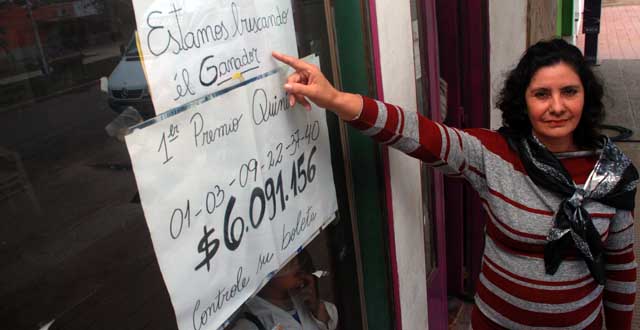 Estamos buscando
él Ganador
1er Premio Quini
01-03-09-22-37-40
$6.091.156
Controle su boleta